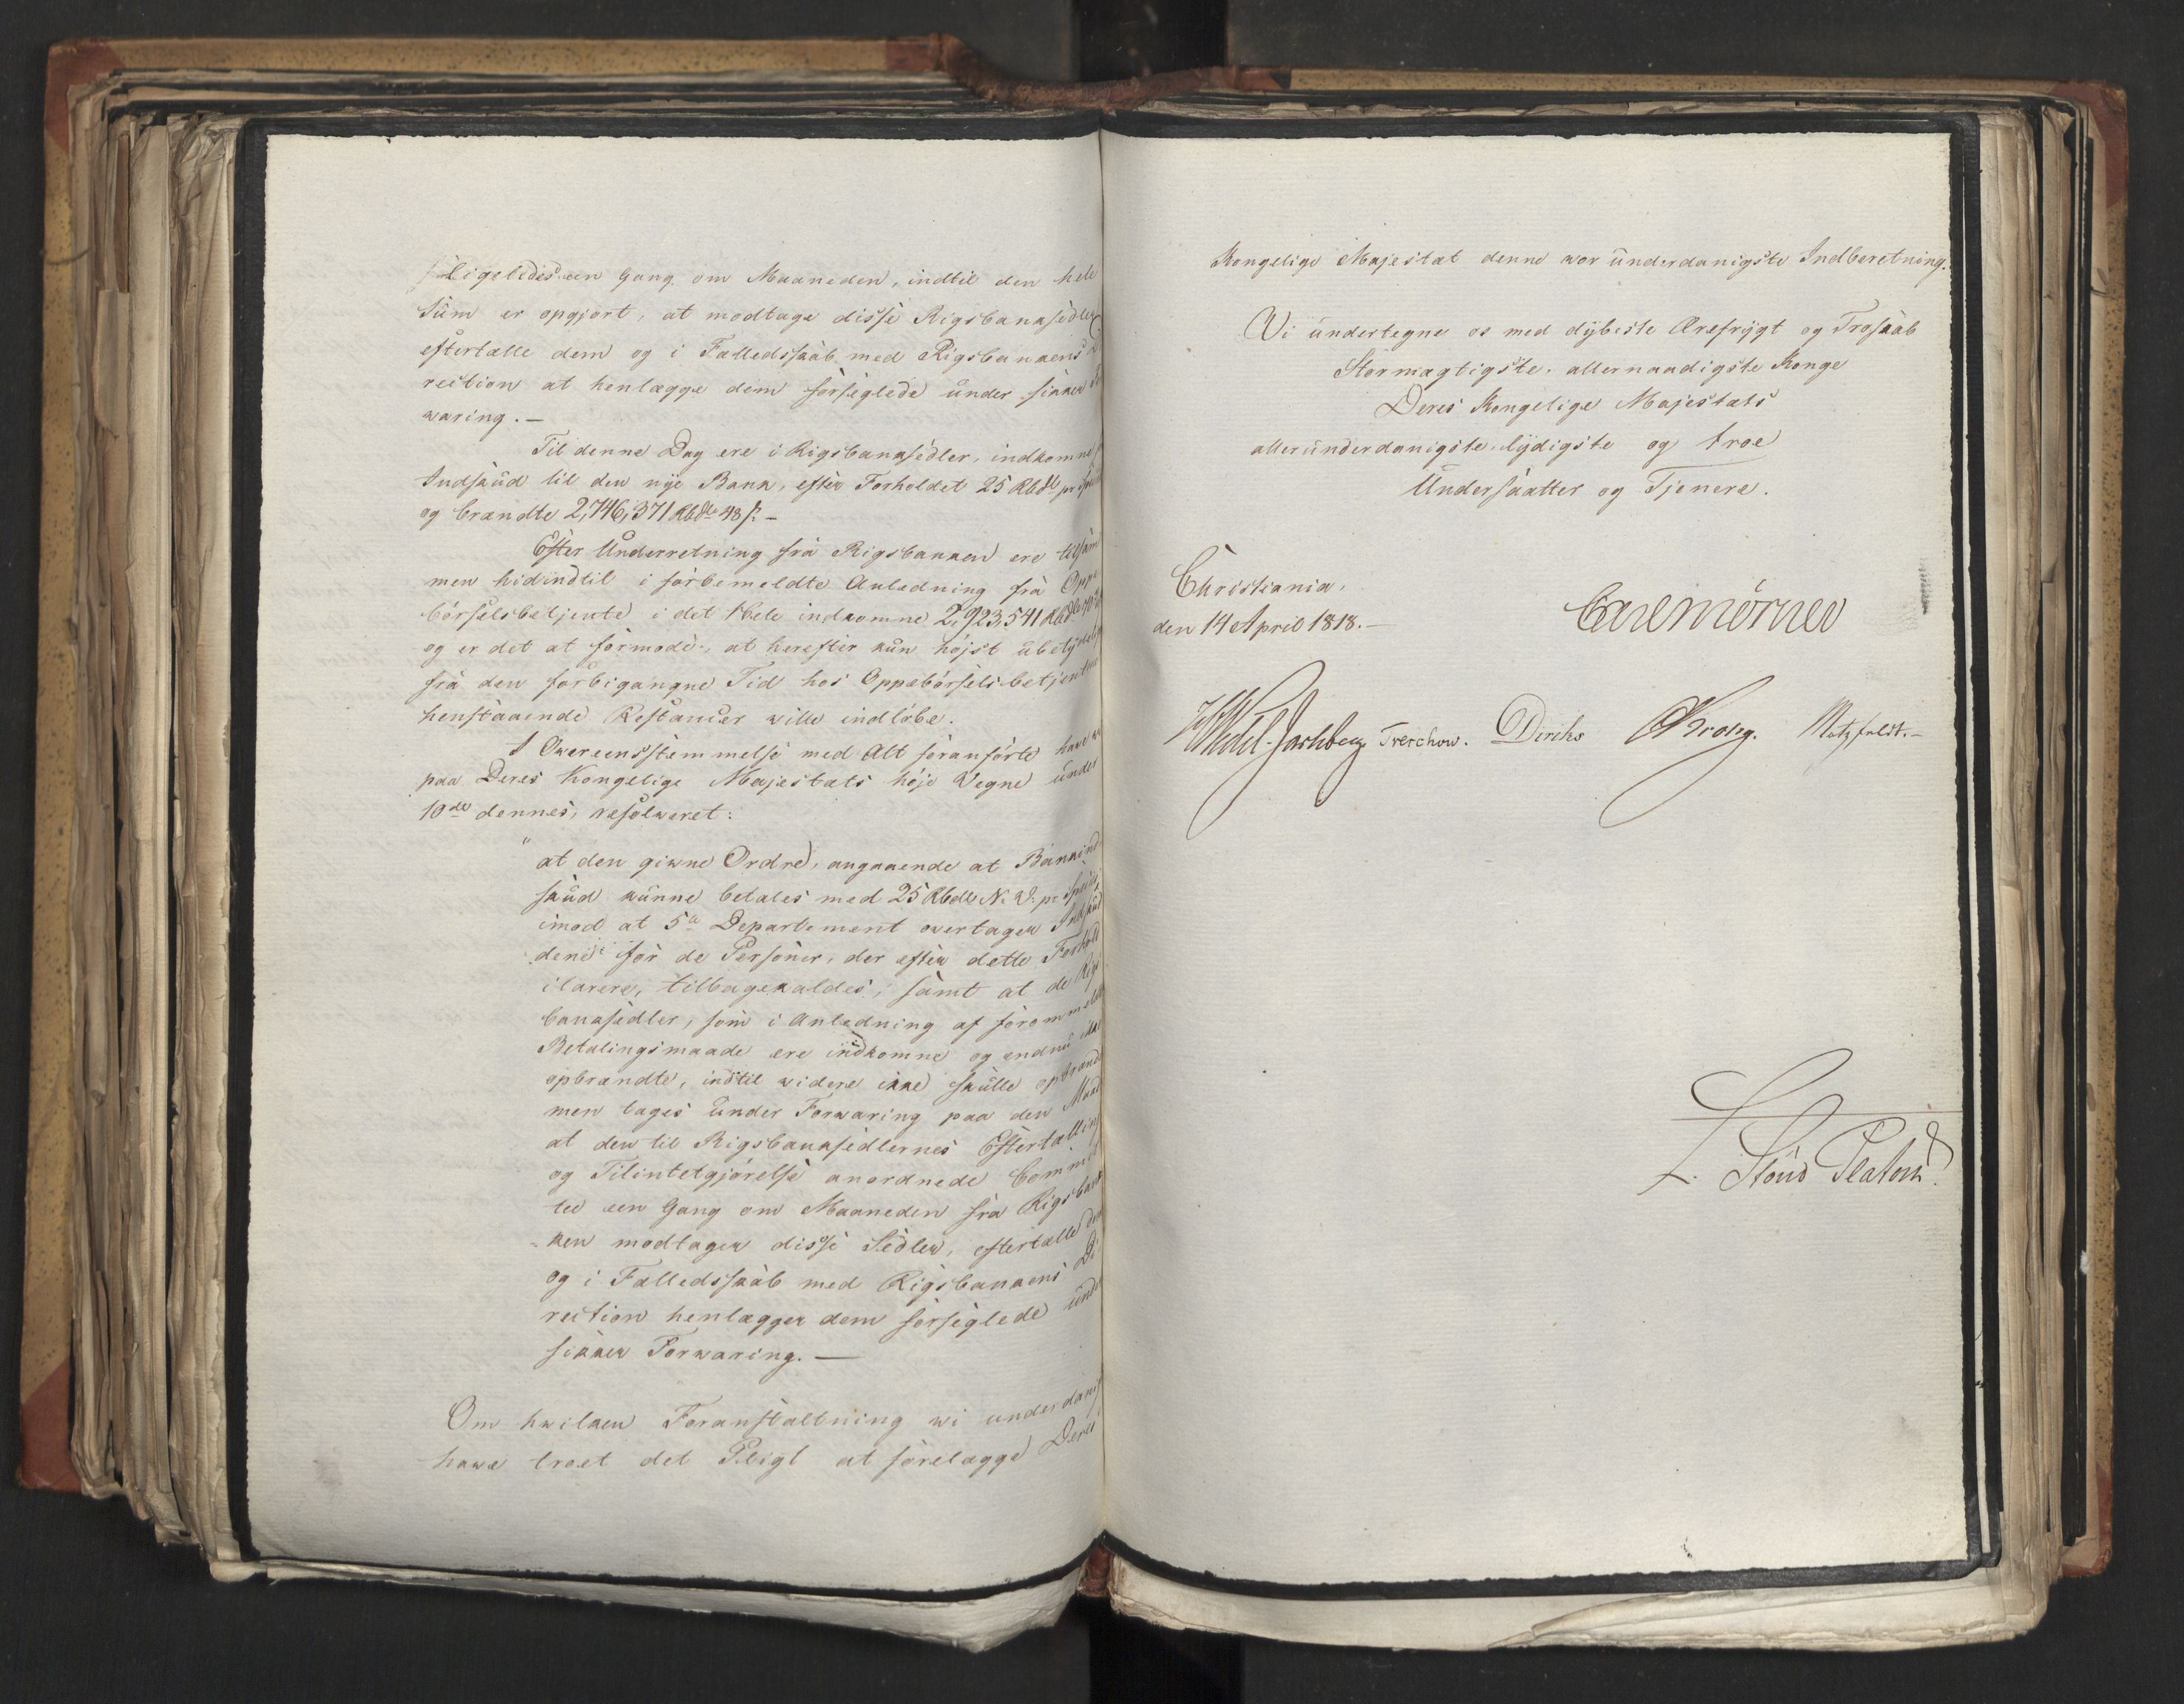 Ligeledes een Gang om Maaneden, indtil den hele
Sum er opgjort, at modtage disse Rigsbanksedler,
eftertælle dem og i Fælledsskab med Rigsbankens Di
rection at henlægge dem forseglede under sikker
waring. —
Til denne Dag ere i Rigsbanksedler, indkomne
Indskud til den nye Bank, efter Forholdet 25 Rbdl pr Specie
og brændte 2,746,371 Rbdlr 48 ß. —
Efter Underretning fra Rigsbanken ere tilsam
men hidindtil i forbemeldte Anledning fra Oppe
børselsbetjente i det Hele indkomne 2,923,541 Rbdlr
og er det at formode, at herefter kun højst ubetydelig
fra den forbigangne Tid hos Oppebørselsbetjentene
henstaaende Restancer wille indløbe.
I Owereensstemmelse med Alt foranførte have wi
paa Deres Kongelige Majestæts høje Vegne under
10de dennes, resolweret:
"at den giwne Ordre, angaaende at Bankind
skud kunne betales med 25 Rbdlr N. V. pr Specie,
imod at 5te Departement owertager Indskud
dene for de Personer, der efter dette Forhold
clarere, tilbagekaldes; samt at de Rigs
banksedler, som i Anledning af forommeldte
Betalingsmaade ere indkomne og endnu ikke
opbrændte, indtil widere ikke skulle opbrændes
men tages under Forwaring paa den Maade
at den til Rigsbanksedlernes Eftertælling
og Tilintetgjørelse anordnede Commit
tee een Gang om Maaneden fra Rigsban
ken modtager disse Sedler, eftertælle dem
og i Fælledsskab med Rigsbankens Di
rection henlægger dem forseglede under
sikker Forwaring. —
Om hwilken Foranstaltning wi underdanigst
hawe troet det Pligt at forelægge Deres
Kongelige Majestæt denne wor underdanigste Indberetning.
Vi undertegne os med dybeste Ærefrygt og Troskab
Stormægtigste, allernaadigste Konge
Deres Kongelige Majestæts
allerunderdanigste, lydigste og troe
Undersaatter og Tjenere.
Christiania,
den 14 April 1818. —
Carl Mörner
Wedel-Jarlsberg Treschow. Diriks Krog. Motzfeldt. —
L. Stoud Platou